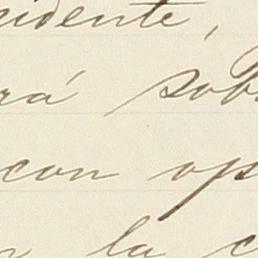 cidente,
rá sob
con op
la c